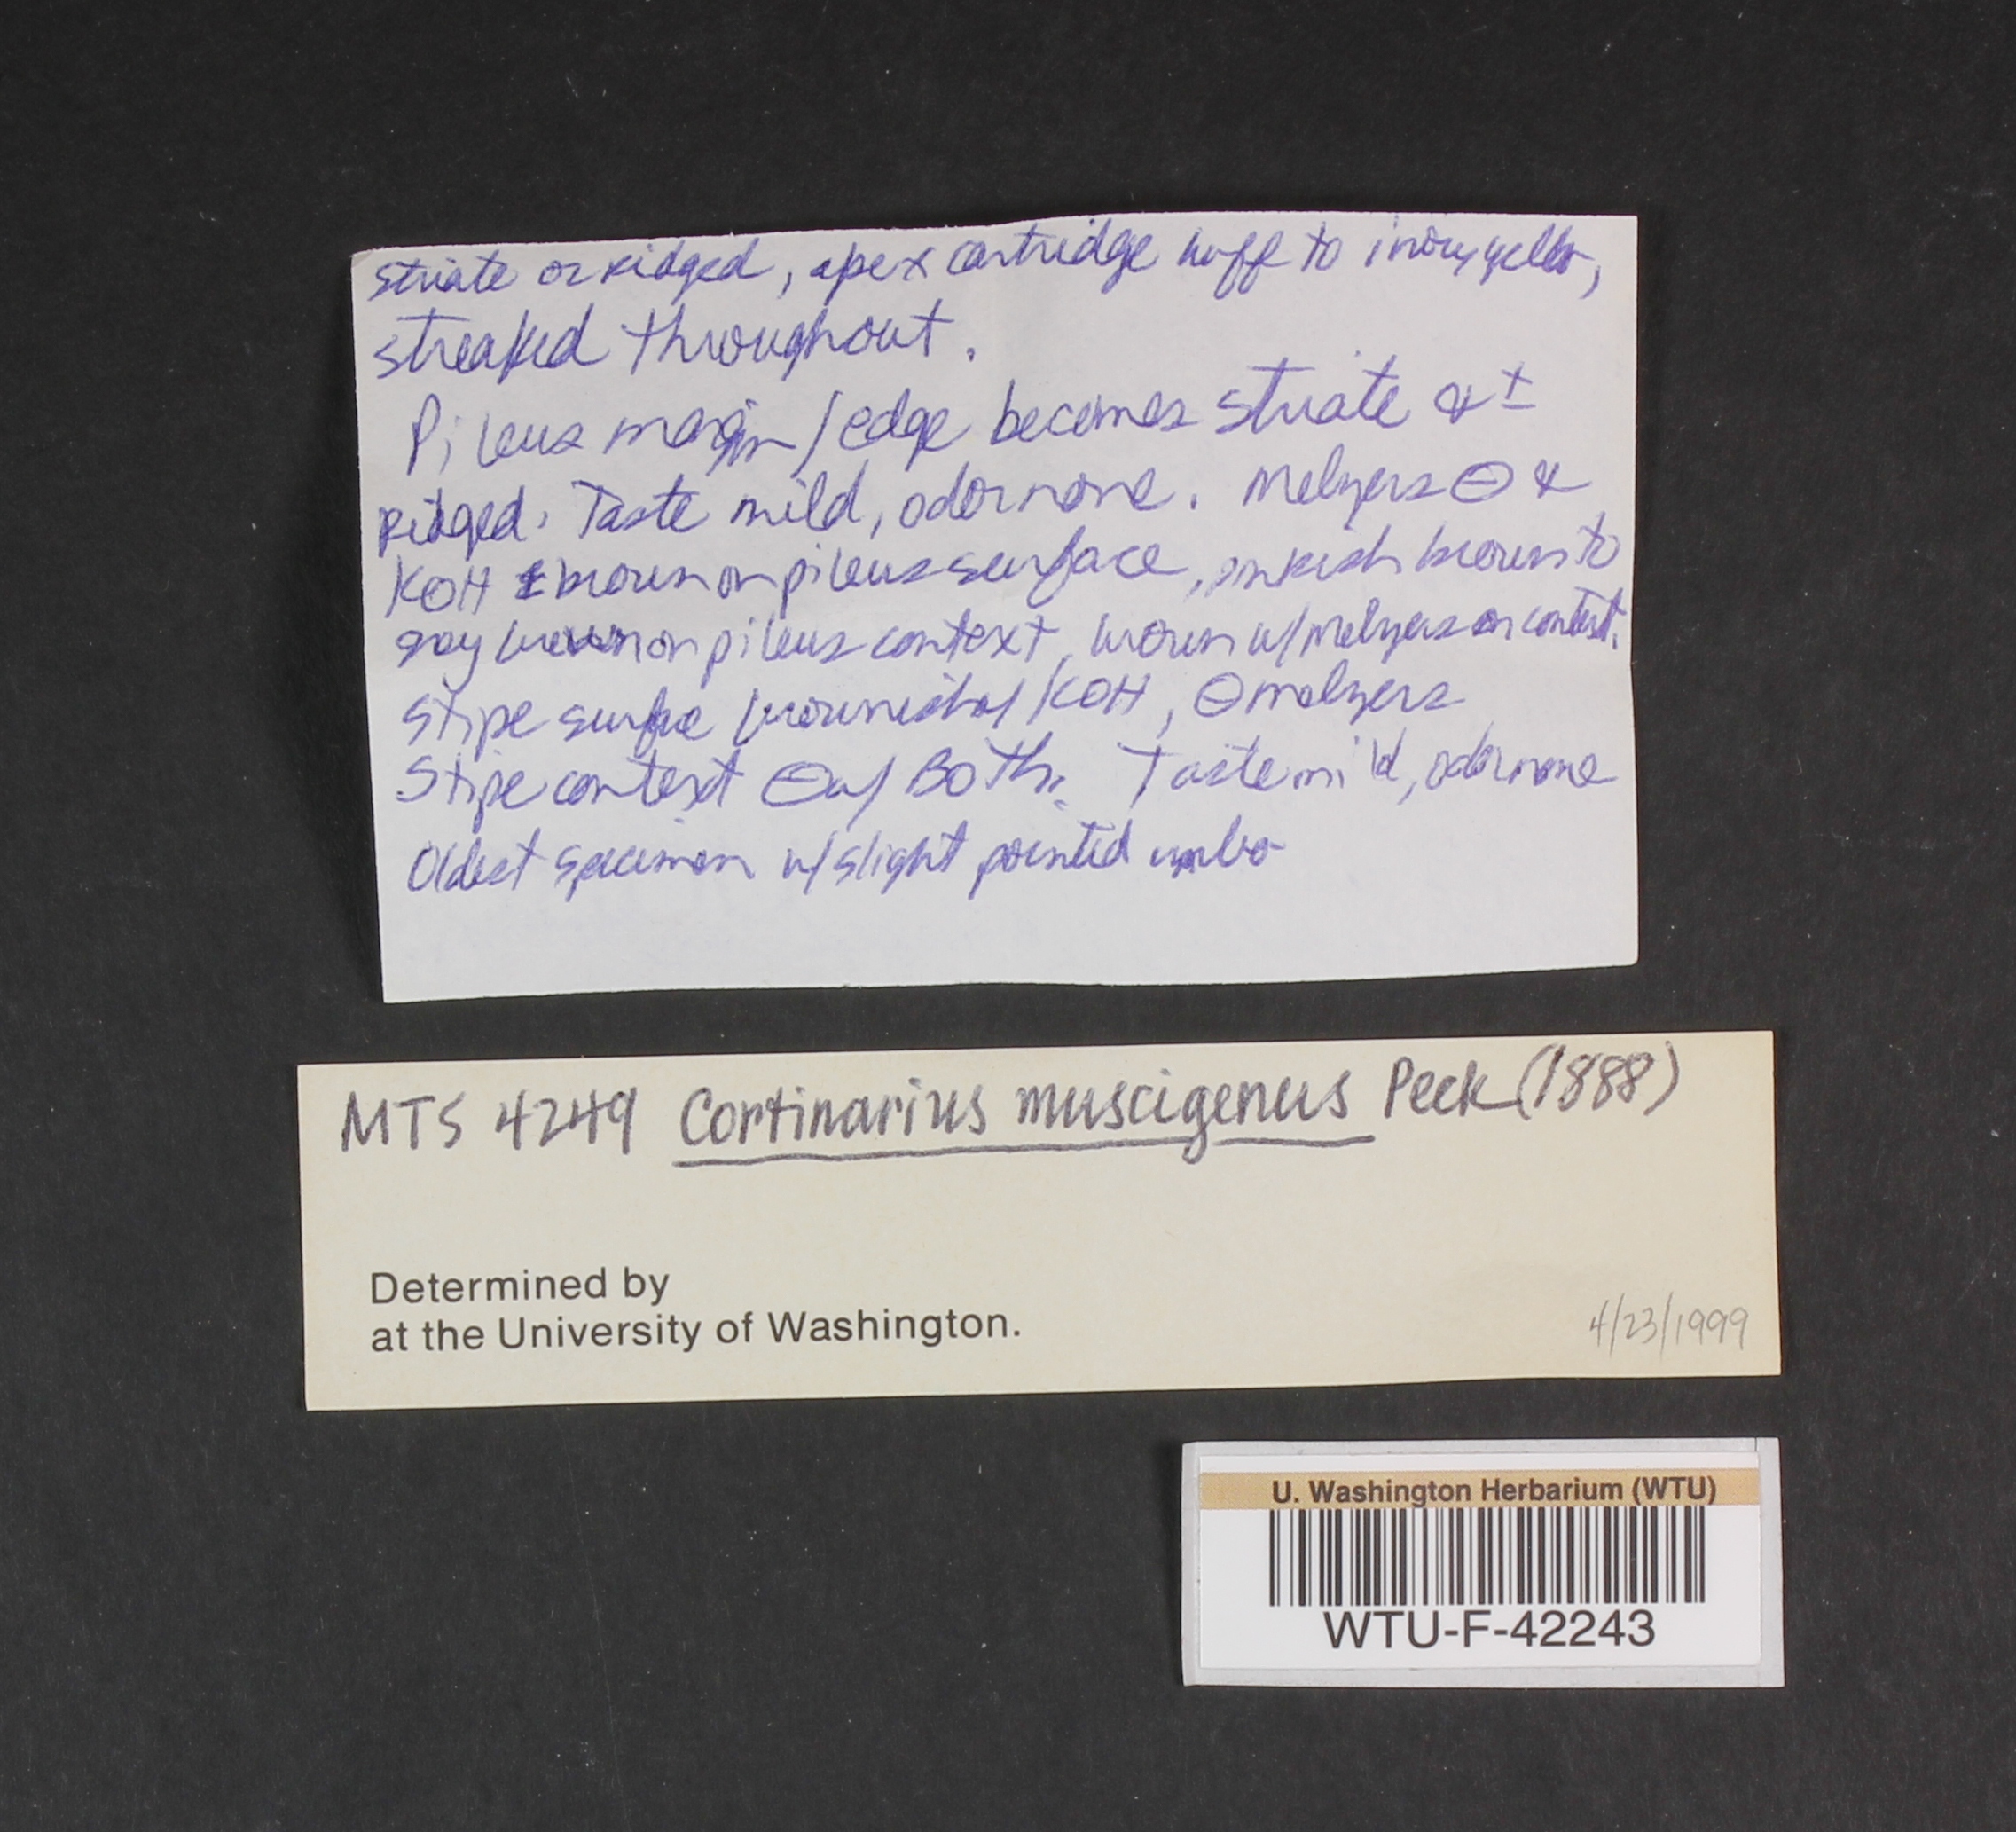 striate or ridged, apex cartridge buff to ivory yellow,
streaked throughout.
Pileus margin/edge becomes striate & ±
ridged. Taste mild, odor none. Melzers ⊖ &
KOH ± brown on pileus surface, pinkish brown to
gray brown on pileus context, brown w/ Melzers on context.
Stipe surface brownish w/ KOH, ⊖ melzers
Stipe context ⊖ w/ Both. Taste mild, odor none
Oldest specimen w/ slight pointed umbo
MTS 4249 Cortinarius muscigenus Peck (1888)
Determined by
at the University of Washington.
4/23/1999
U. Washington Herbarium (WTU)
WTU-F-42243